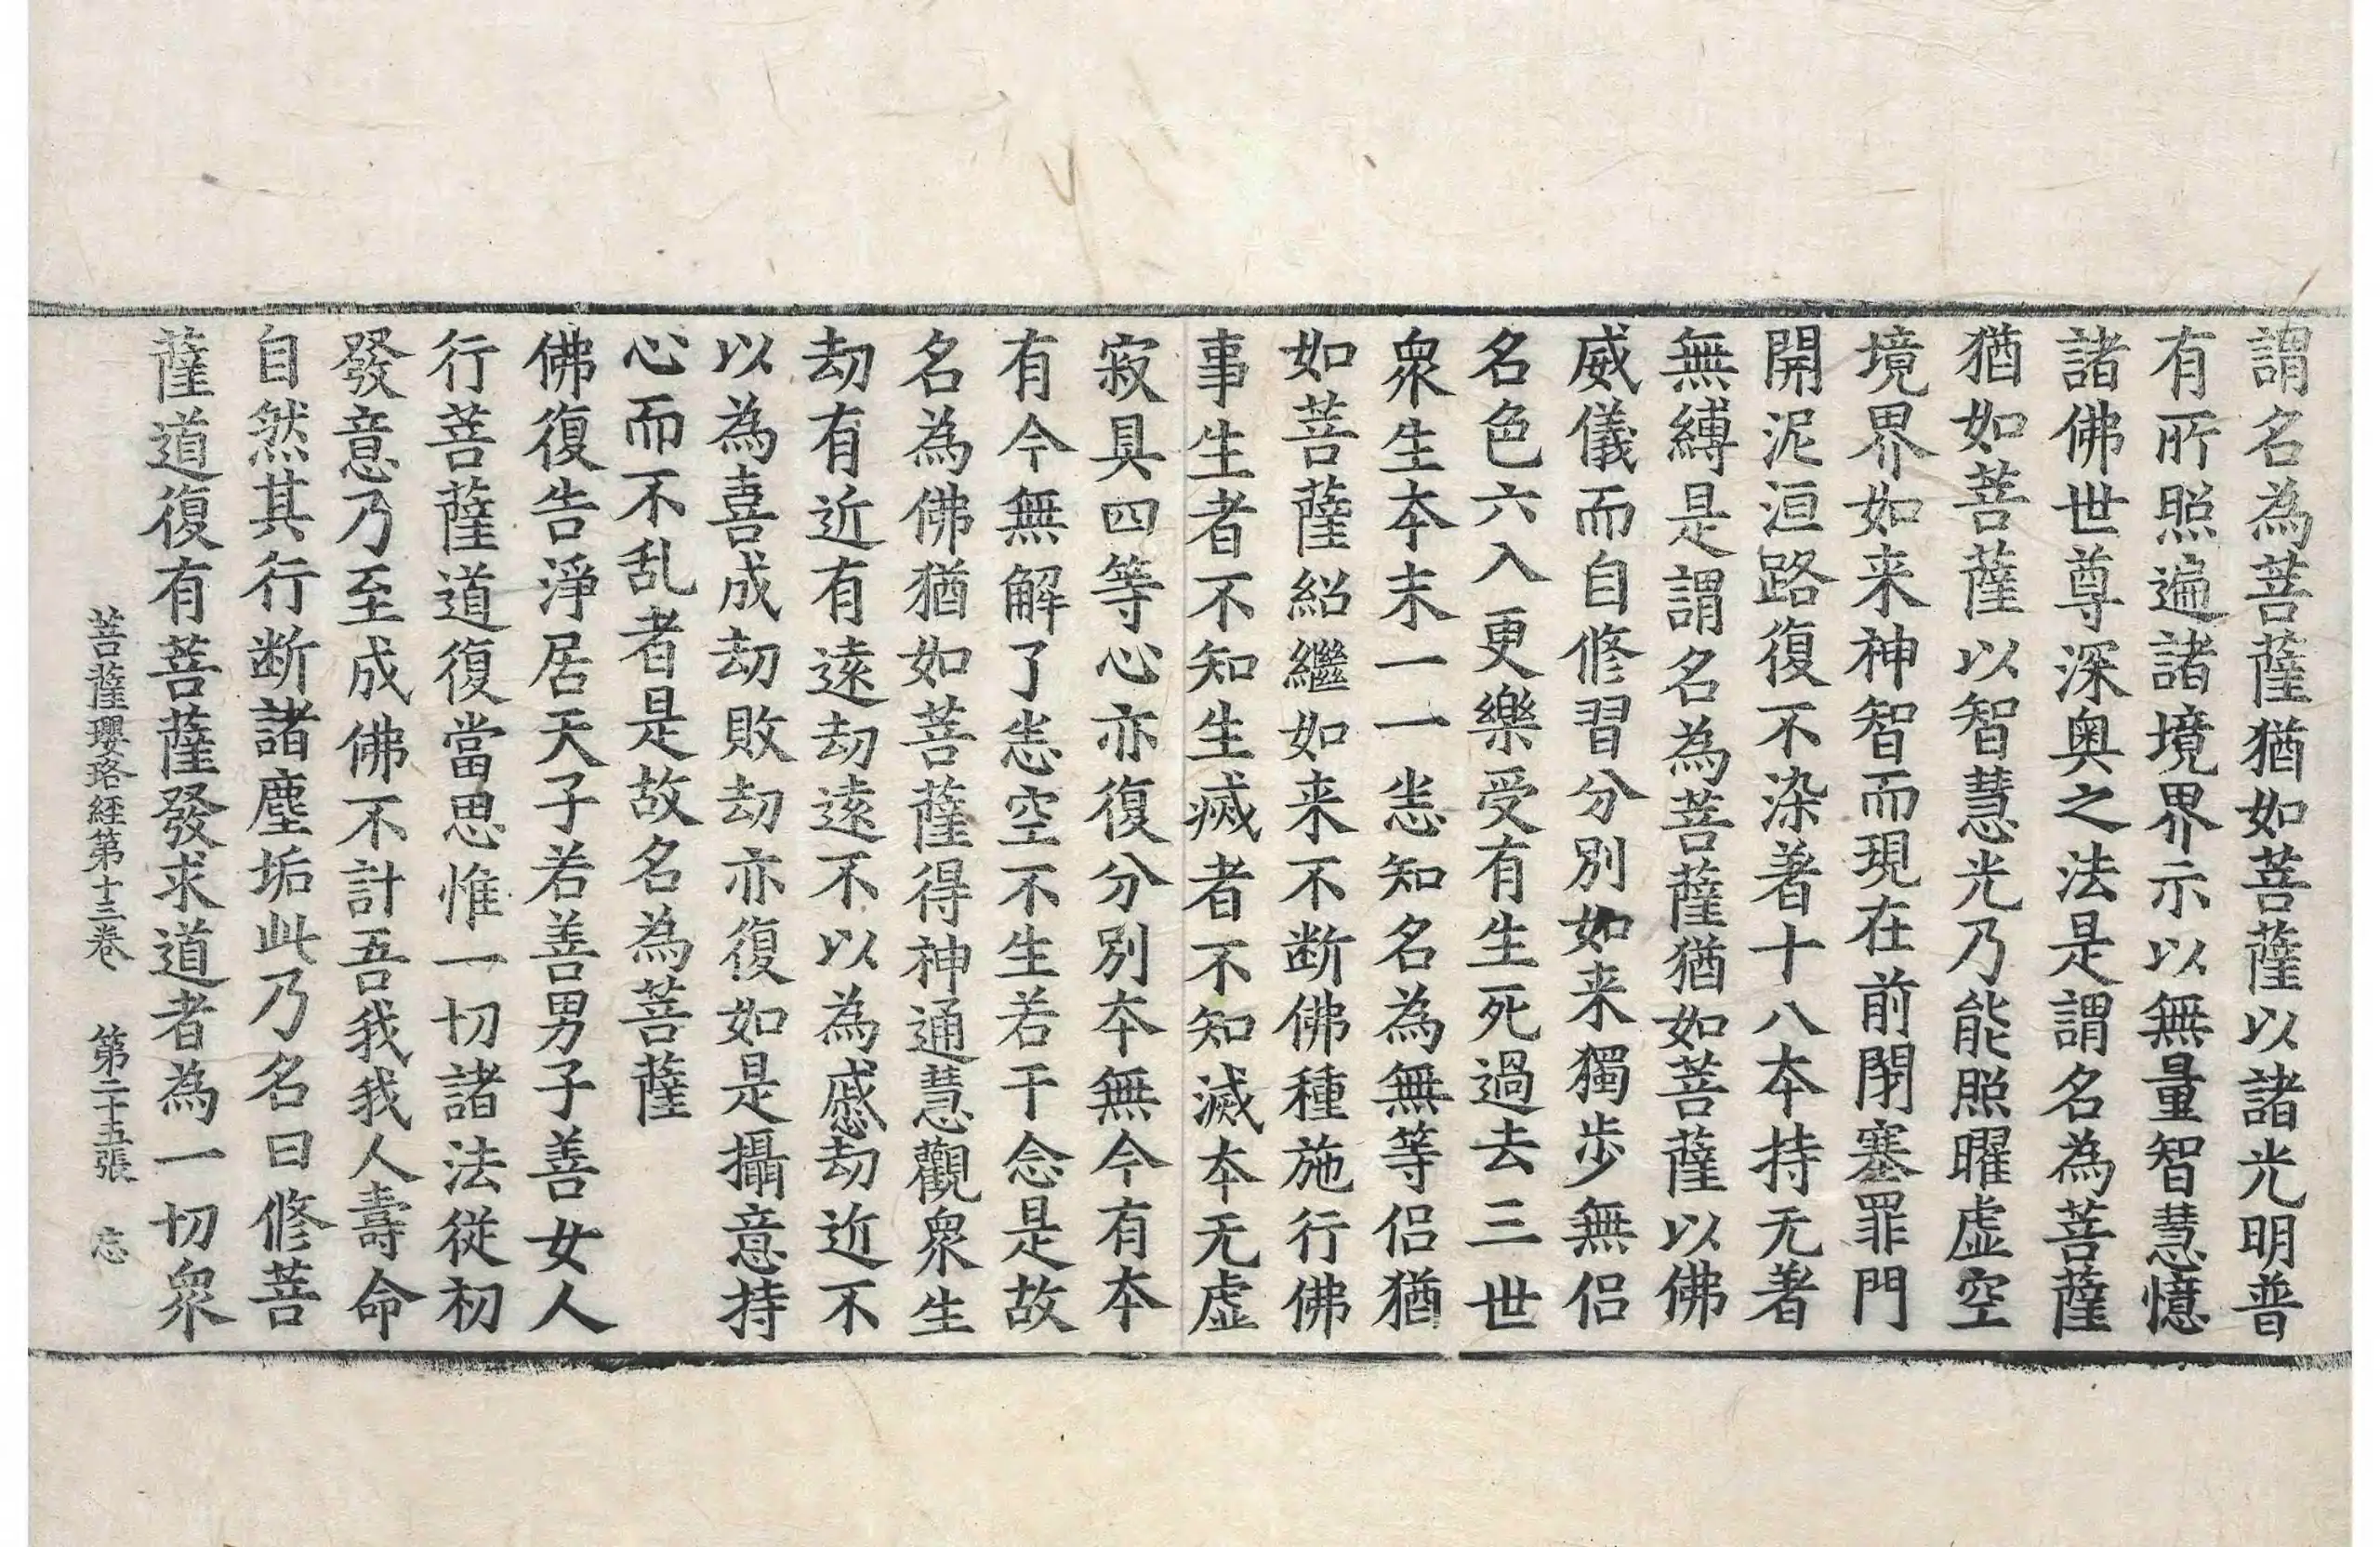 謂名為菩薩猶如菩薩以諸光明普
有所照遍諸境界示以無量智慧憶
諸佛世尊深奧之法是謂名為菩薩
猶如菩薩以智慧光乃能照曜虛空
境界如来神智而現在前閇塞罪門
開泥洹路復不染著十八本持无著
無縛是謂名為菩薩猶如菩薩以佛
威儀而自修習分別如来獨步無侶
名色六入更樂受有生死過去三世
衆生本末一一悉知名為無等侶猶
如菩薩紹繼如来不断佛種施行佛
事生者不知生滅者不知滅本无虛
寂具四等心亦復分別本無今有本
有今無解了悉空不生若干念是故
名為佛猶如菩薩得神通慧觀衆生
劫有近有遠劫遠不以為慼劫近不
以為喜成劫敗劫亦復如是攝意持
心而不乱者是故名為菩薩
佛復告淨居天子若善男子善女人
行菩薩道復當思惟一切諸法從初
發意乃至成佛不計吾我我人壽命
自然其行断諸塵垢此乃名曰修菩
薩道復有菩薩發求道者為一切衆
菩薩瓔珞經第十三卷 第二十五張 忘